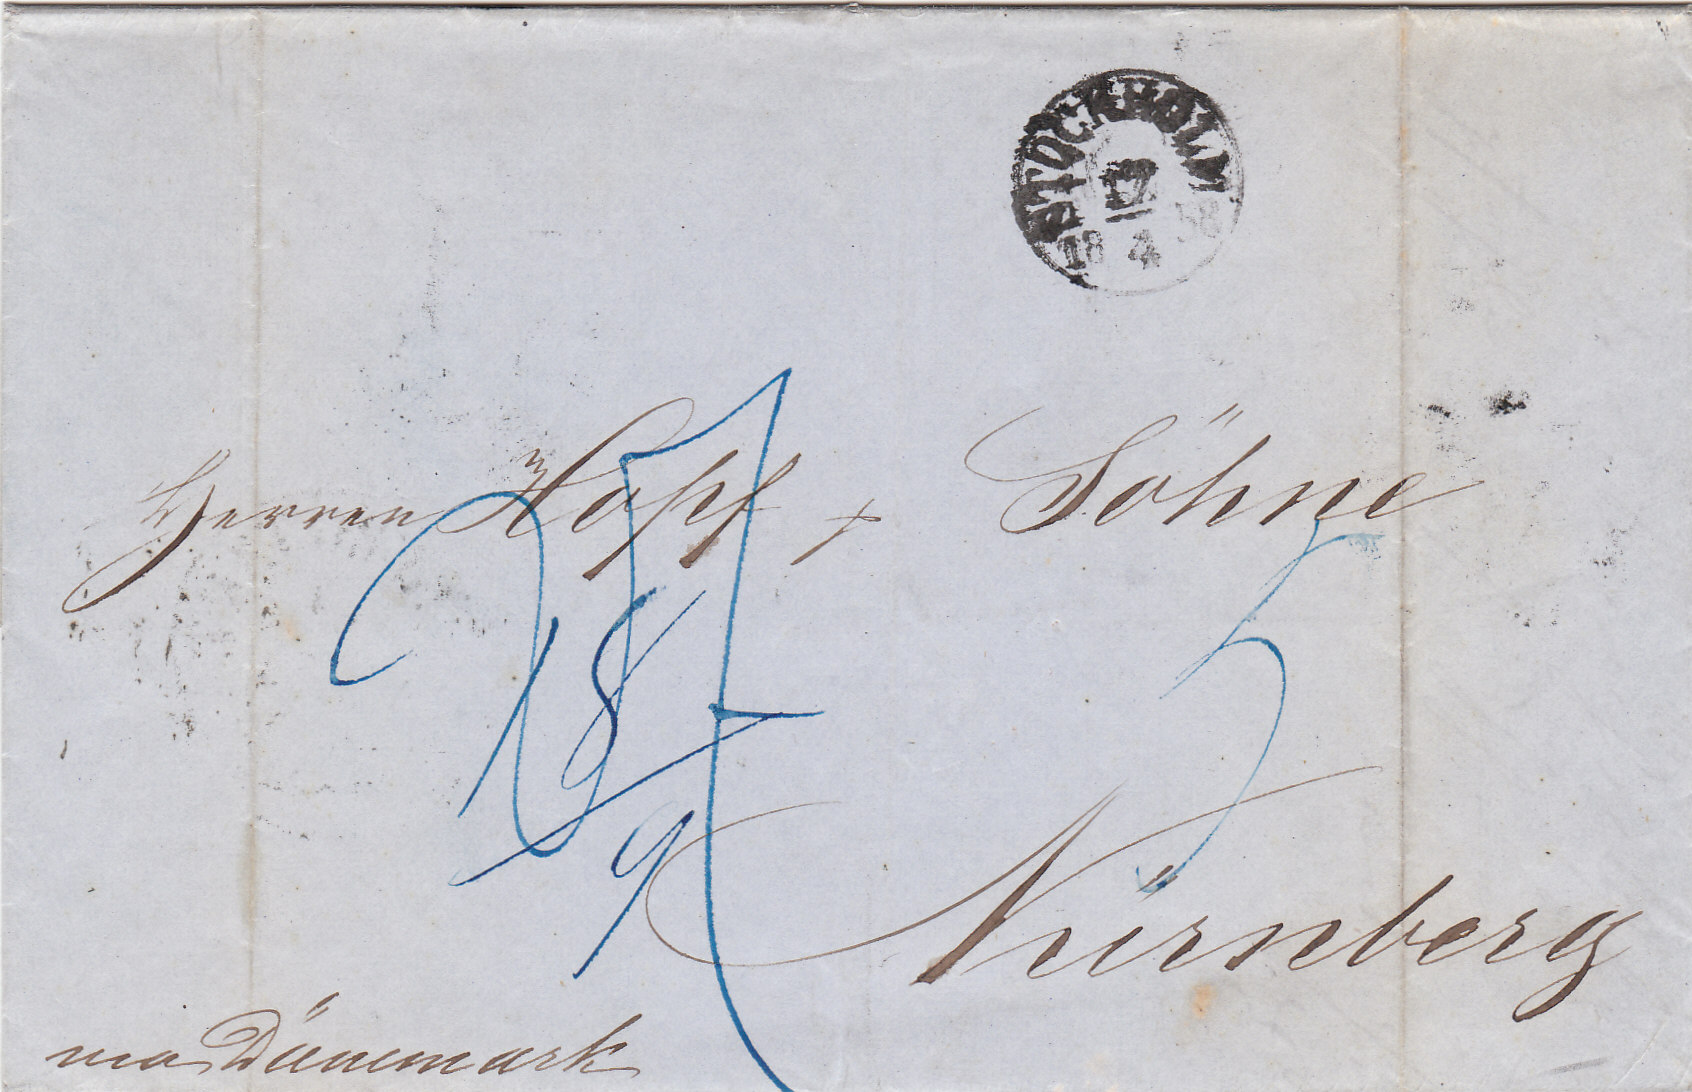 STOCKHOLM
17
18 4 58
Herren Hopf & Söhne
5
18
9
Nürnberg
via Dänemark